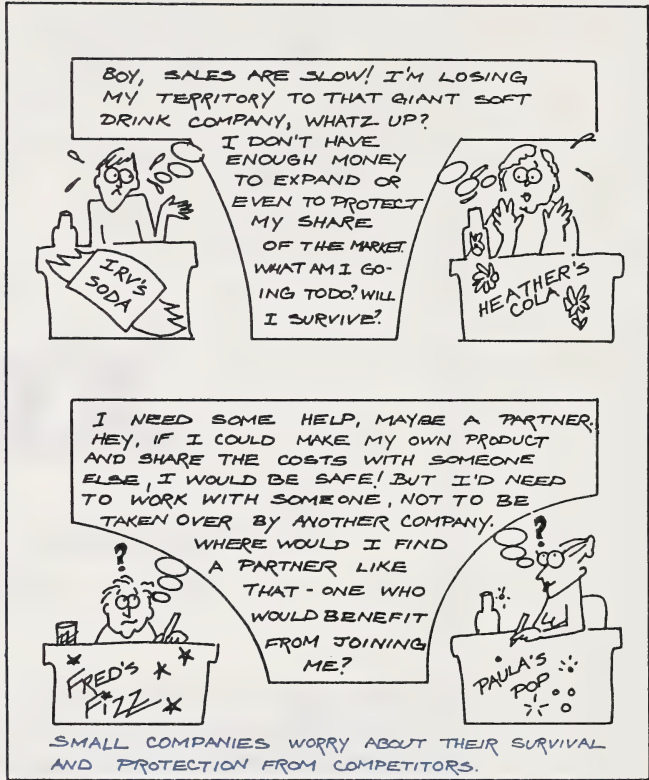 BOY, SALES ARE SLOW! I'M LOSING
MY TERRITORY TO THAT GIANT SOFT
DRINK COMPANY, WHATZ UP?
I DON'T HAVE
ENOUGH MONEY
TO EXPAND OR
EVEN TO PROTECT
MY SHARE
OF THE MARKET.
WHAT AM I GO-
ING TO DO? WILL
I SURVIVE?
IRV'S
SODA
HEATHER'S
COLA
I NEED SOME HELP, MAYBE A PARTNER.
HEY, IF I COULD MAKE MY OWN PRODUCT
AND SHARE THE COSTS WITH SOMEONE
ELSE, I WOULD BE SAFE! BUT I'D NEED
TO WORK WITH SOMEONE, NOT TO BE
TAKEN OVER BY ANOTHER COMPANY.
WHERE WOULD I FIND
A PARTNER LIKE
THAT - ONE WHO
WOULD BENEFIT
FROM JOINING
ME?
?
?
FRED'S
FIZZ
PAULA'S
POP
SMALL COMPANIES WORRY ABOUT THEIR SURVIVAL
AND PROTECTION FROM COMPETITORS.